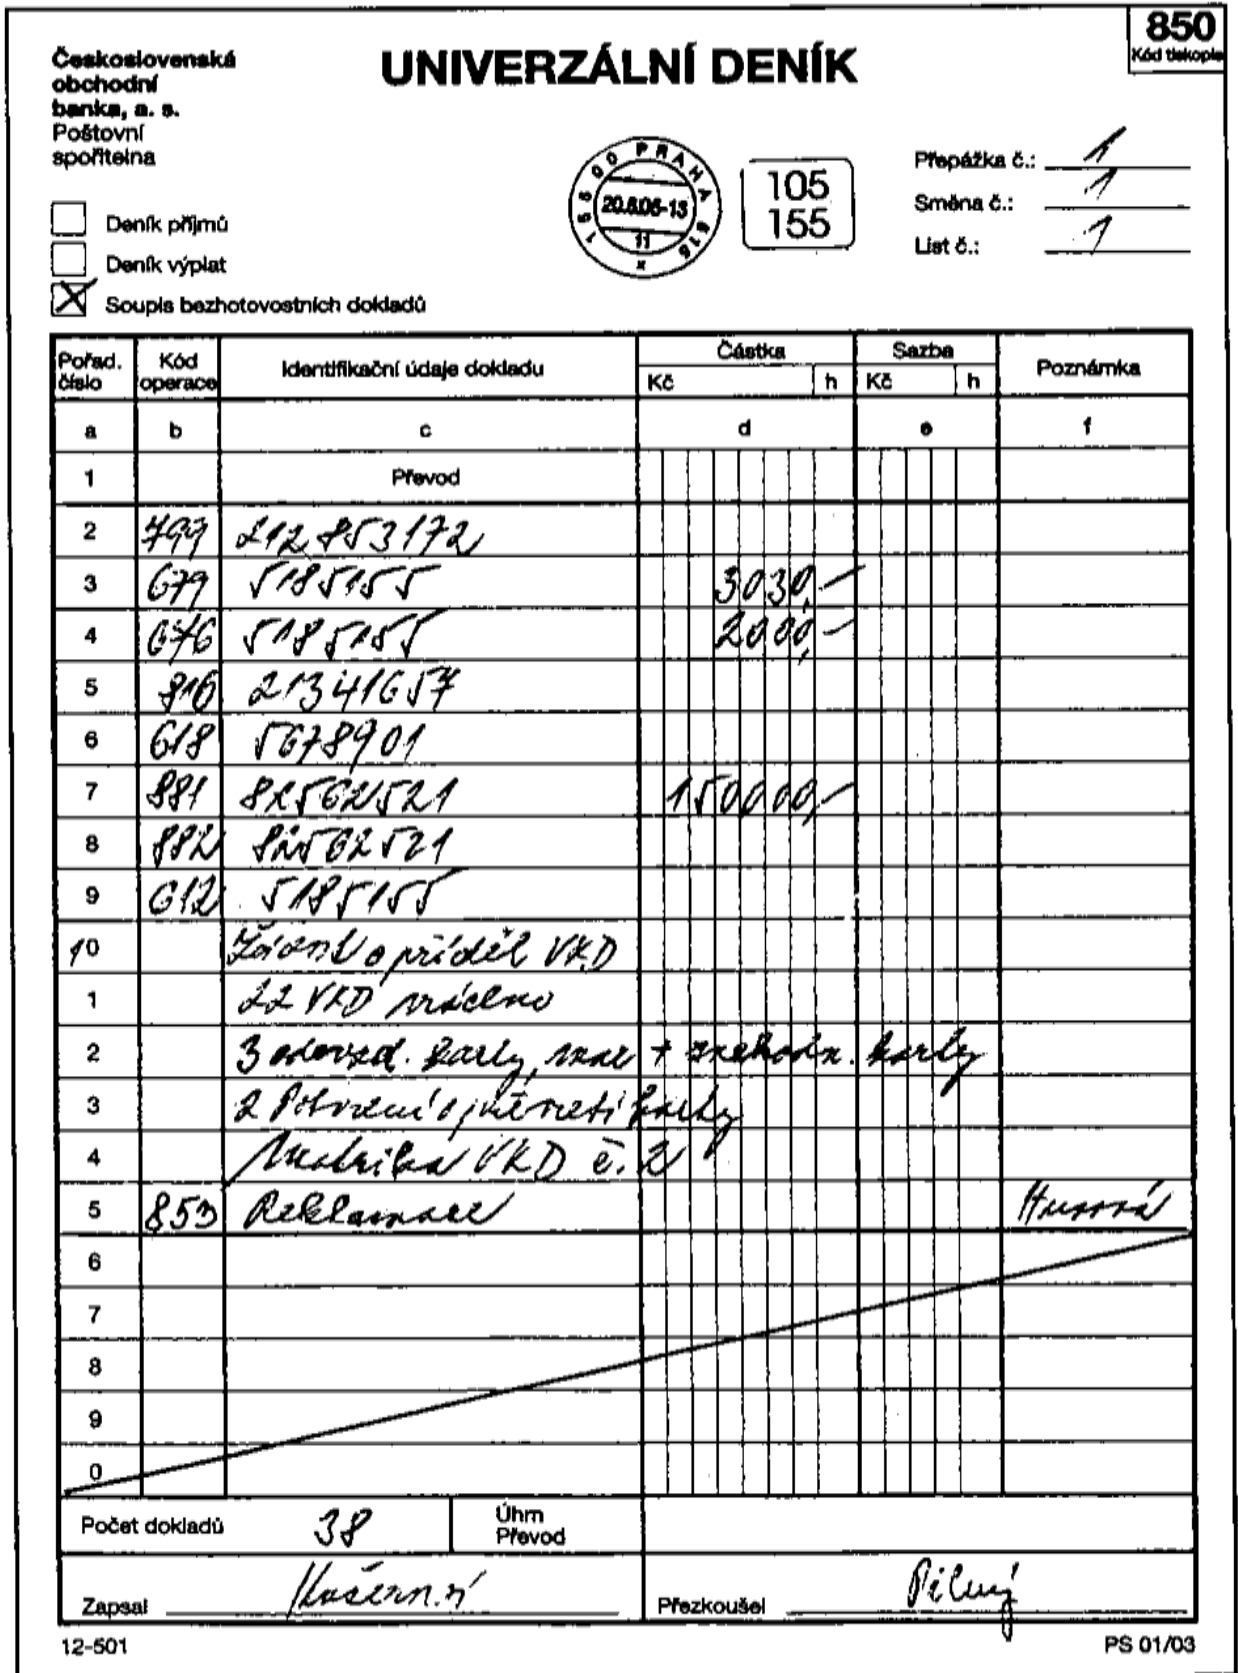 850
Kód tiskopisu
Československá
obchodní
banka, a. s.
Poštovní
spořitelna
UNIVERZÁLNÍ DENÍK
155 00 PRAHA 515
20.6.06-13
11
*
105
155
Přepážka č.: 1
Směna č.: 1
List č.: 1
Deník příjmů
Deník výplat
X Soupis bezhotovostních dokladů
Pořad. číslo Kód operace Identifikační údaje dokladu Částka Kč h Sazba Kč h Poznámka
a b c d e f
1 Převod
2 799 212 853172
3 679 5185155 3030,-
4 676 5185155 2000,-
5 816 21341657
6 618 5678901
7 881 82562521 150000,-
8 882 82562521
9 612 5185155
10 Žádost o příděl VKD
1 22 VKD vráceno
2 3 odevzd. karty, + znehodn. karty
3 2 Potvrzení o převzetí karty
4 Matrika VKD č. 2
5 853 Reklamace
6
7
8
9
0
Počet dokladů 38 Úhrn
Převod
Zapsal
Přezkoušel Pilný
12-501 PS 01/03